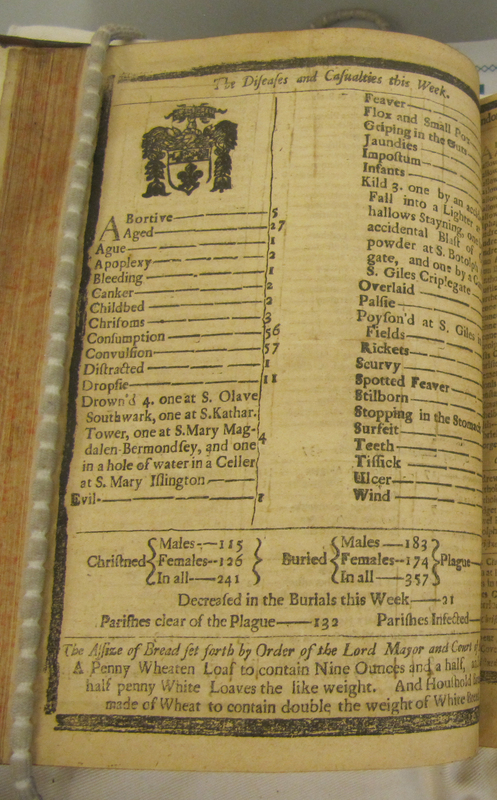 The Diseases and Casualties this Week.
ABortive — 5
Aged — 27
Ague — 1
Apoplexy — 2
Bleeding — 1
Canker — 2
Childbed — 2
Chrisoms — 3
Consumption — 56
Convulsion — 57
Distracted — 1
Dropsie — 11
Drown'd 4. one at S. Olave
Southwark, one at S. Kathar.
Tower, one at S. Mary Mag-
dalen Bermondsey, and one — 4
in a hole of water in a Celler
at S. Mary Islington —
Evil — 1
Feaver —
Flox and Small Pox
Griping in the Guts
Jaundies —
Impostum —
Infants —
Kild 3. one by an
Fall into a Lighter
hallows Stayning, one
accidental Blast of
powder at S. Botolph
gate, and one by a
S. Giles Criplegate
Overlaid —
Palsie —
Poyson'd at S. Giles in
Fields —
Rickets —
Scurvy —
Spotted Feaver —
Stilborn —
Stopping in the Stomach
Surfeit —
Teeth —
Tissick —
Ulcer —
Wind —
Christned { Males — 115 Females — 126 In all — 241 }
Buried { Males — 183 Females — 174 In all — 357 } Plague —
Decreased in the Burials this Week — 21
Parishes clear of the Plague — 132 Parishes Infected —
The Assize of Bread set forth by Order of the Lord Mayor and Court of
A Penny Wheaten Loaf to contain Nine Ounces and a half,
half penny White Loaves the like weight. And Houshold
made of Wheat to contain double the weight of White